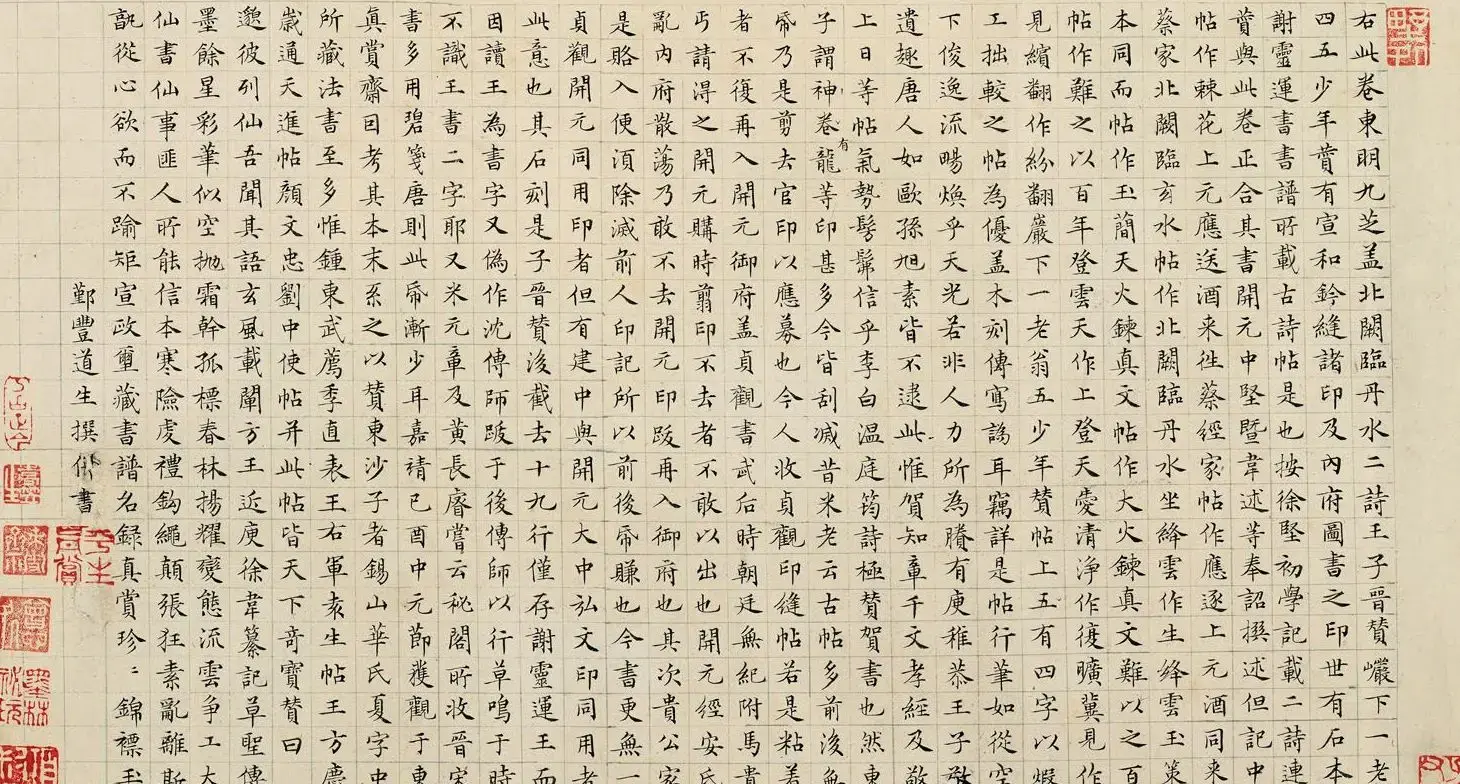 右此卷東明九芝盖北闕臨丹水二詩王子晉賛巗下一老
四五少年賛有宣和鈐縫諸印及內府圖書之印世有石本
謝靈運書書譜所載古詩帖是也按徐堅初學記載二詩連
賛與此卷正合其書開元中堅暨韋述等奉詔撰述但記中
帖作棘花上元應送酒来徃蔡經家帖作應逐上元酒同来
蔡家北闕臨玄水帖作北闕臨丹水坐絳雲作生絳雲玉策
本同而帖作玉簡天火鍊真文帖作大火鍊真文難以之百
帖作難之以百年登雲天作上登天愛清淨作復曠冀見作
見繽翻作紛翻巖下一老翁五少年賛帖上五有四字以煆
工拙較之帖為優盖木刻傳寫譌耳竊詳是帖行筆如從空
下俊逸流暢煥乎天光若非人力所為騰有庾稚恭王子敬
遺趣唐人如歐孫旭素皆不逮此惟賀知章千文孝經及敬
上日等帖氣勢髣髴信乎李白温庭筠詩極賛賀書也然東
子謂神卷有龍等印甚多今皆刮减昔米老云古帖多前後無
帝乃是剪去官印以應募也今人收貞觀印縫帖若是粘差
者不復再入開元御府盖貞觀書武后時朝廷無紀附馬貴
丐請得之開元購時翦印不去者不敢以出也開元經安氏
亂內府散蕩乃敢不去開元印跋再入御府也其次貴公家
是賂入便湏除滅前人印記所以前後帝賺也今書更無一
貞觀開元同用印者但有建中與開元大中弘文印同用者
此意也其石刻是子晉賛後截去十九行僅存謝靈運王而
因讀王為書字又偽作沈傳師跋于後傳師以行草鳴于時
不識王書二字耶又米元章及黃長睿嘗云秘閣所收晉宋
書多用碧箋唐則此帋漸少耳嘉靖己酉中元節獲觀于東
真賞齋囙考其本末系之以賛東沙子者錫山華氏夏字中
所藏法書至多惟鍾東武薦季直表王右軍袁生帖王方慶
嵗通天進帖顏文忠劉中使帖并此帖皆天下奇寶賛曰
邈彼列仙吾聞其語玄風載闡方王近庾徐韋纂記草聖傳
墨餘星彩筆似空抛霜幹孤標春林揚耀變態流雲爭工大
仙書仙事匪人所能信本寒險虔禮鈎繩顛張狂素亂離斯
訄從心欲而不踰矩宣政璽藏書譜名録真賞珍〻錦褾玉
鄞豐道生撰併書